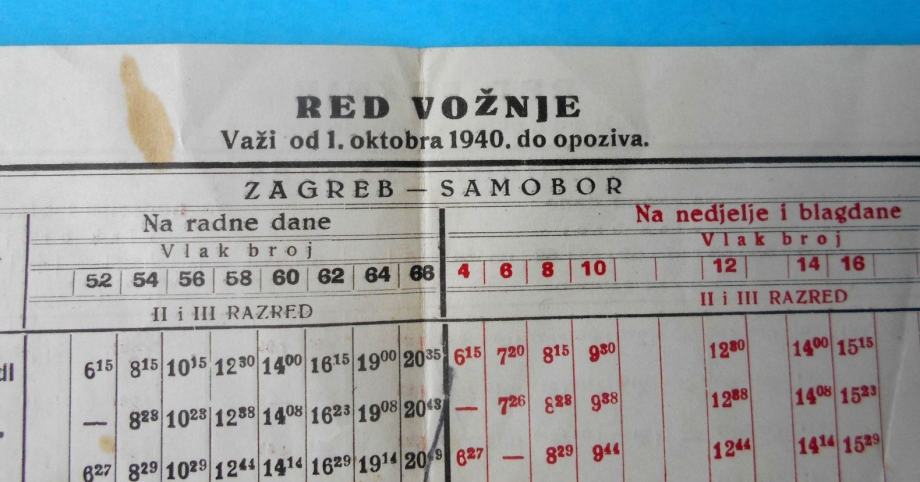 RED VOŽNJE
Važi od 1. oktobra 1940. do opoziva.
ZAGREB — SAMOBOR
Na radne dane Na nedjelje i blagdane
Vlak broj Vlak broj
52 54 56 58 60 62 64 66 4 6 8 10 12 14 16
II i III RAZRED II i III RAZRED
6 15 8 15 10 15 12 30 14 00 16 15 19 00 20 35 6 15 7 20 8 15 9 30 12 30 14 00 15 15
— 8 23 10 23 12 38 14 08 16 23 19 08 20 43 — 7 26 8 23 9 38 12 38 14 08 15 23
6 27 8 29 10 29 12 44 14 14 16 29 19 14 6 27 — 8 29 9 44 12 44 14 14 15 29